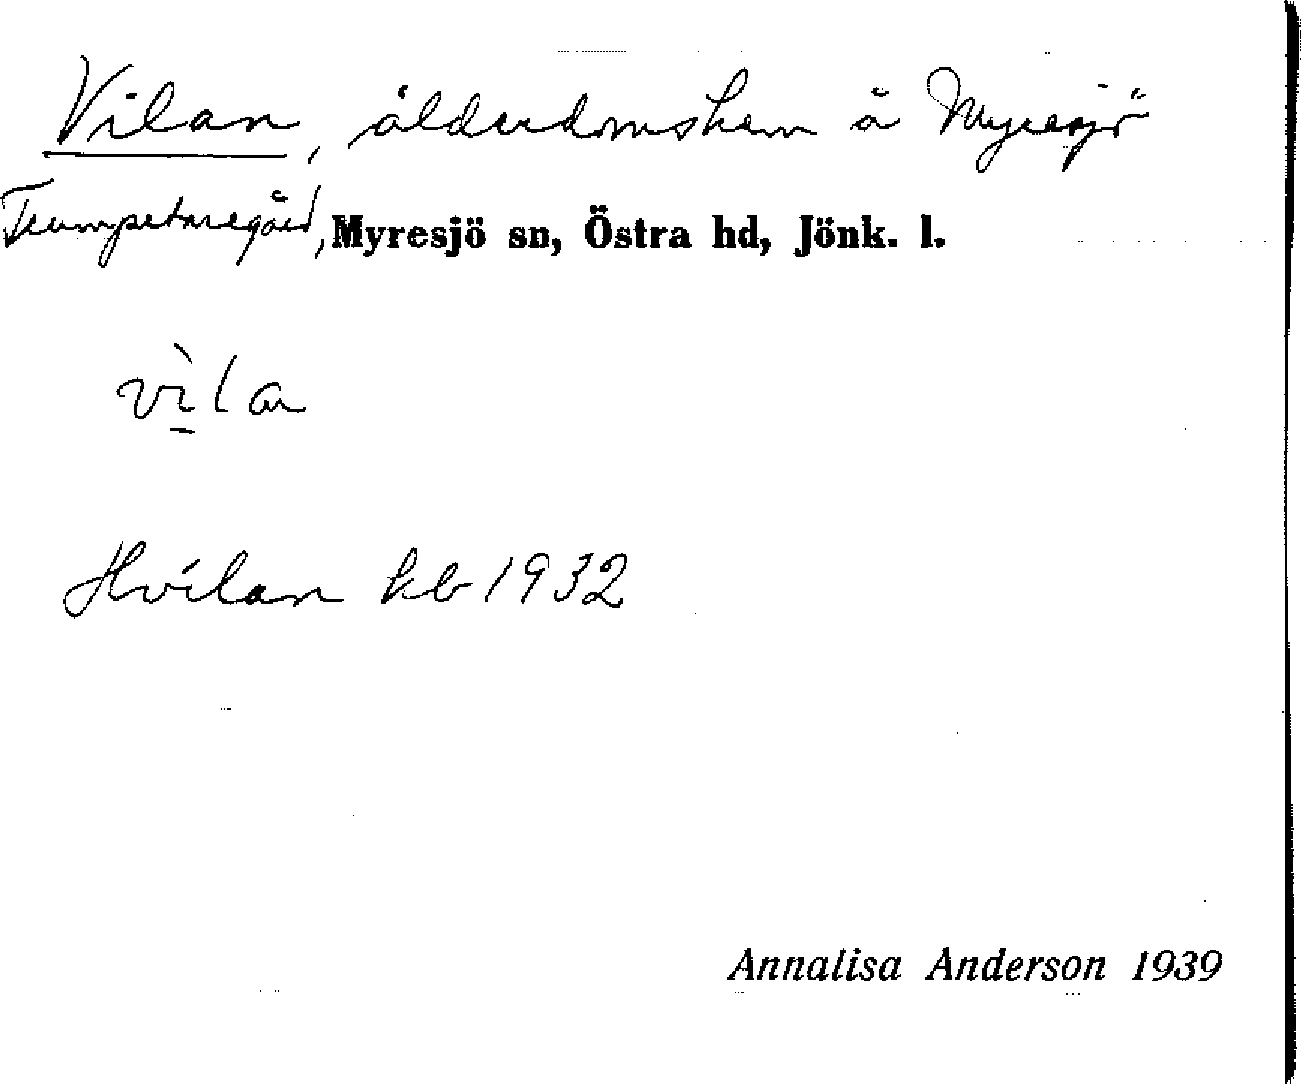 Vilan, ålderdomshem å Myresjö
Trumpetaregård, Myresjö sn, Östra hd, Jönk. l.
vìlan
Hvilan kb 1932
Annalisa Anderson 1939